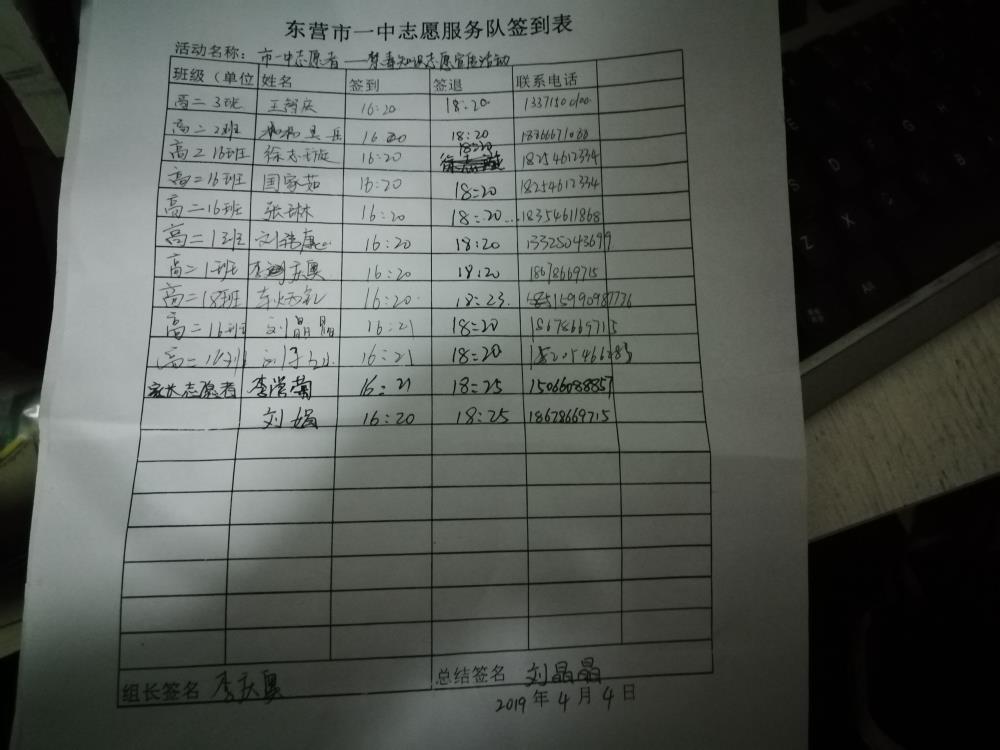 东营市一中志愿服务队签到表
活动名称：市一中志愿者——禁毒知识志愿宣传活动
班级（单位 姓名 签到 签退 联系电话
高二3班 王智庆 16:20 18:20
高二2班 16:20 18:20
高二16班 徐志璇 16:20 18:20 18254612334
高二16班 国家茹 16:20 18:20 18254612334
高二16班 张琳 16:20 18:20 18354611868
高二1班 刘浩康 16:20 18:20 13325043699
高二1班 16:20 18:20 18678669715
高二18班 16:20 18:23
高二16班 刘晶晶 16:21 18:20 18678669715
高二16班 16:21 18:20
家长志愿者 李常菊 16:21 18:25 15066088857
刘娟 16:20 18:25 18678669715
组长签名 李庆奥 总结签名 刘晶晶
2019年4月4日